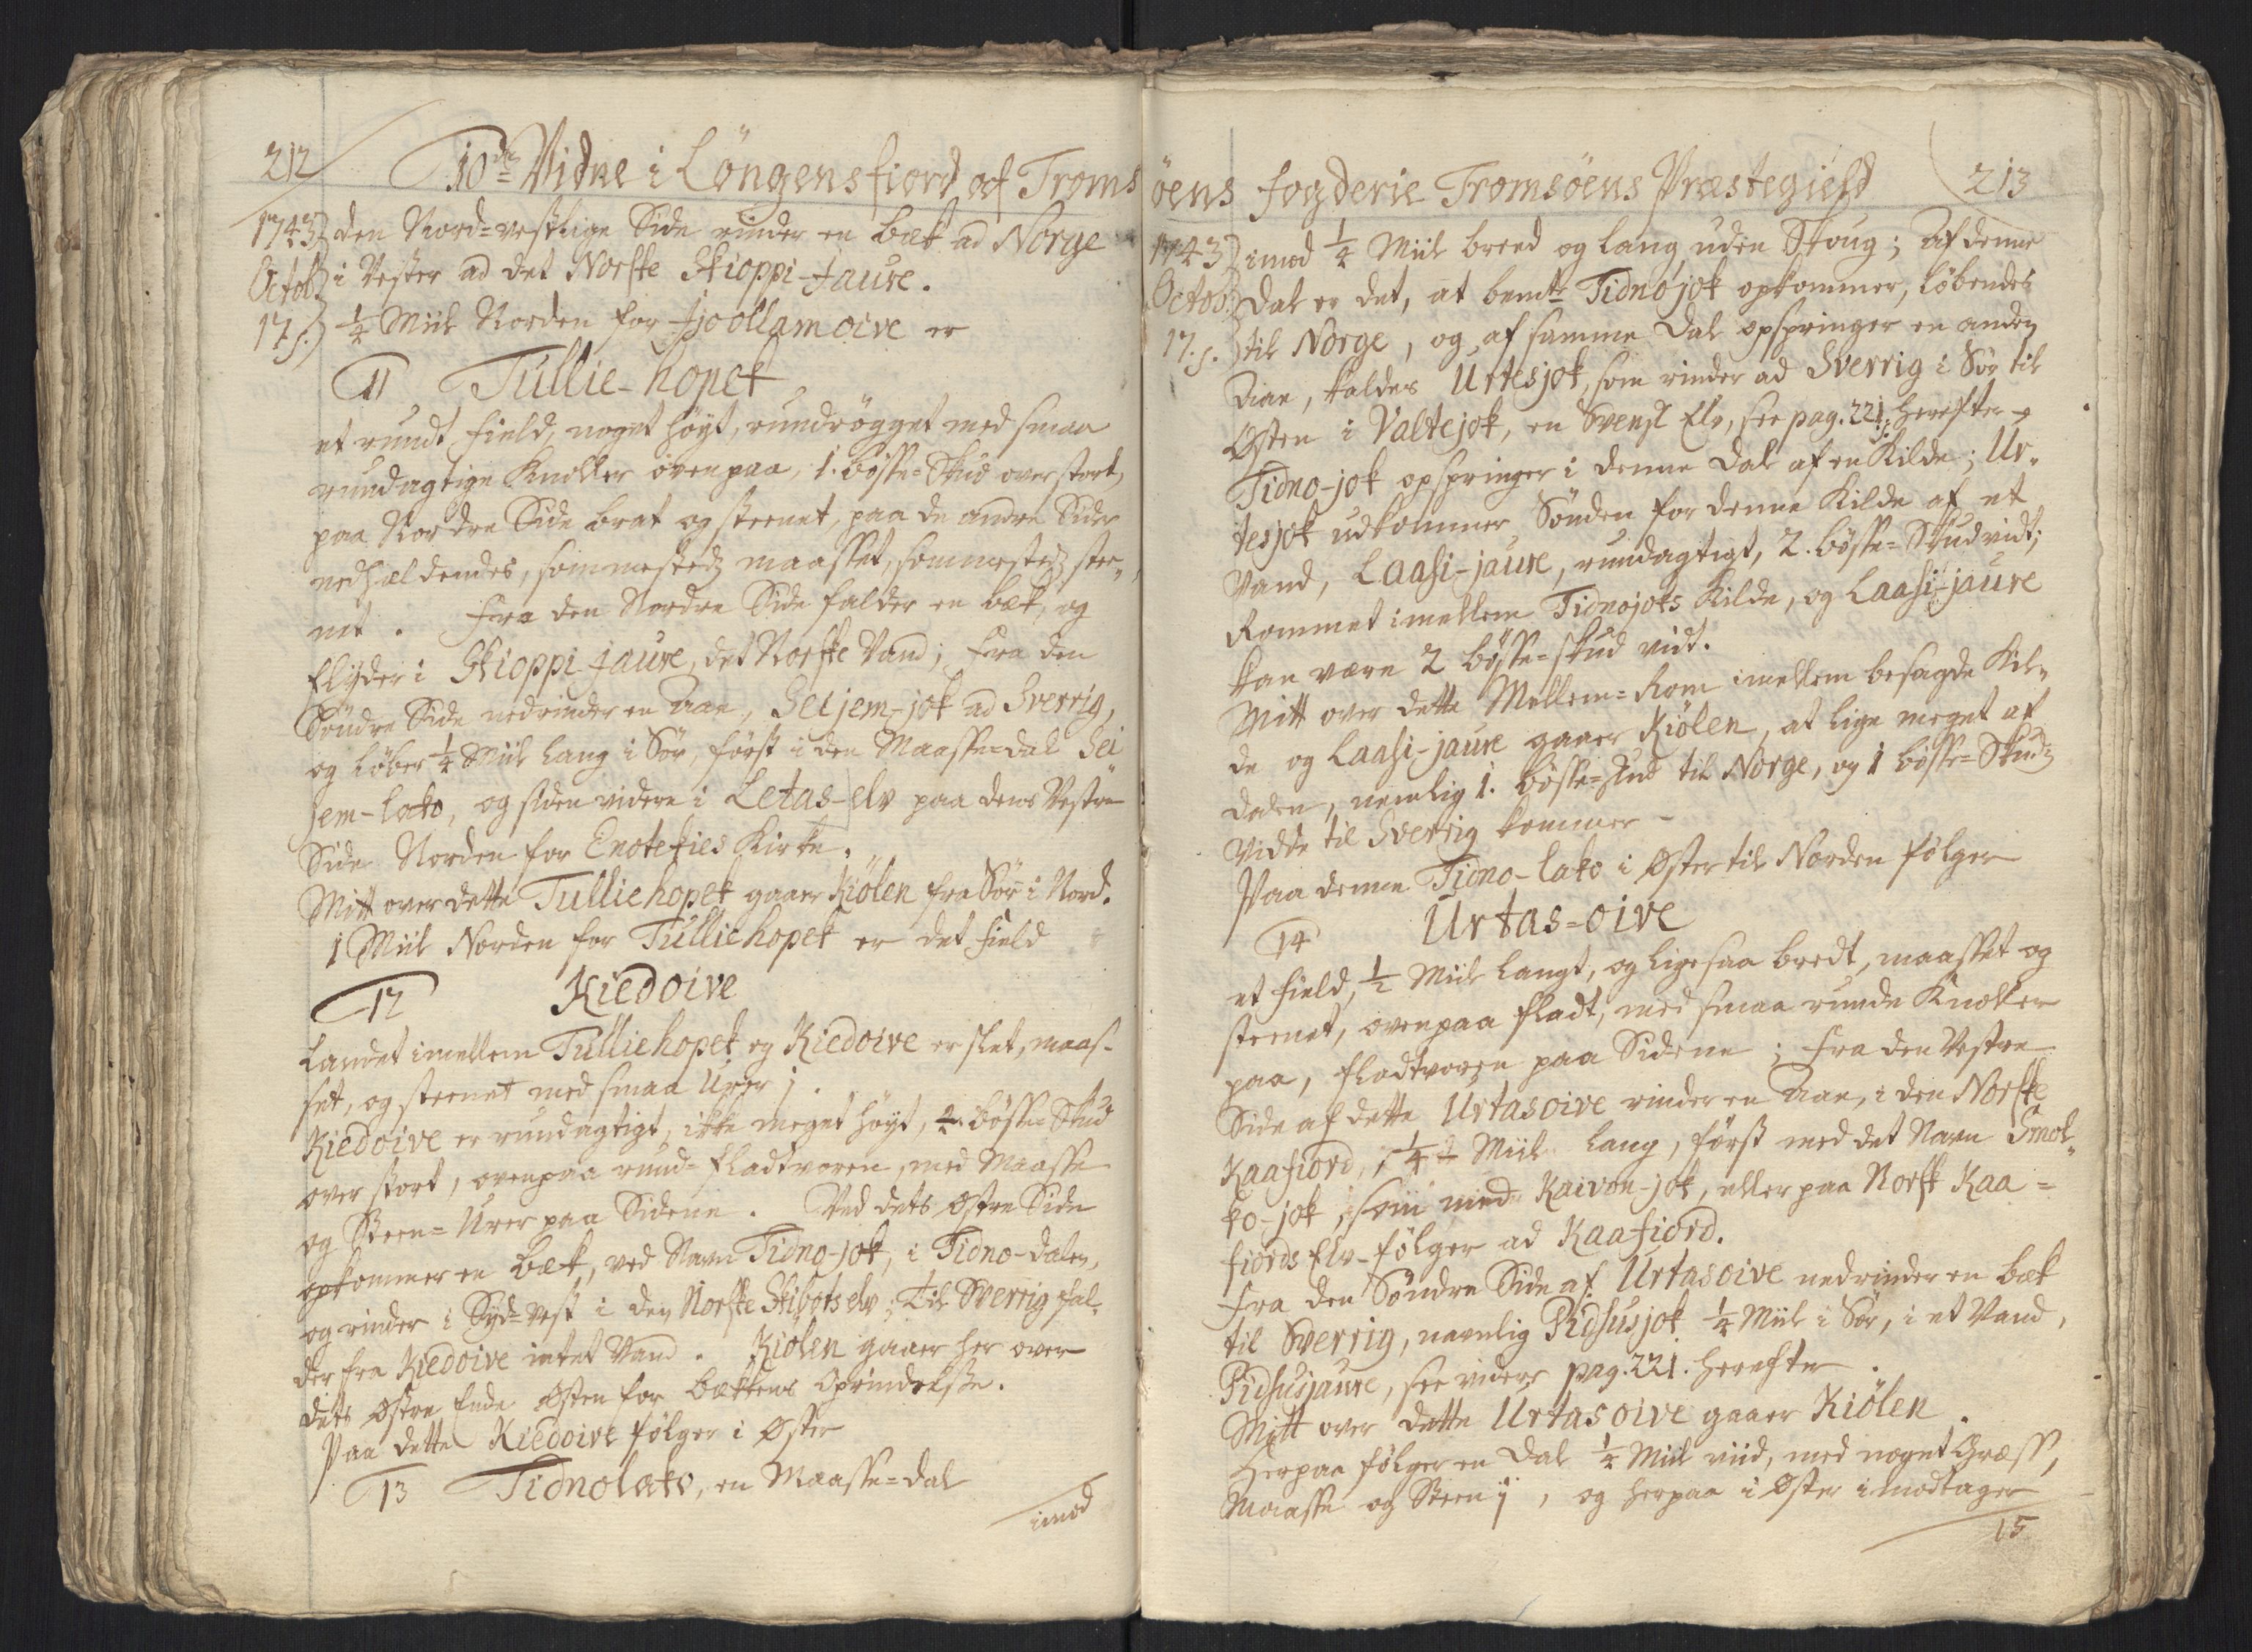 212
10de Vidne i Løngensfiord af Troms
1743 den Nord=vestlige Side rinder en bæk ad Norge
Octob. i Vester ad det Norske Skioppi-Jaure.
17. s. 1/4 Miil Norden for Jjoollamoive er
11 Tullie-hopek
et rundt Field, noget høyt, rundrøgget med smaa
rundagtige Knolter ovenpaa, 1. bøsse=Skud over stort,
paa Nordre Side brat og steenet, paa de andre Sider
nedhældendes, sommestedz maasset, sommestedz stee„
net. Fra den Nordre Side falder en bæk, og
flyder i Skioppi jaure, det Norske Vand; Fra den
Søndre Side nedrinder en Aae, Seijem-jok ad Sverrig,
og løber 1/4 Miil lang i Sør, først i den Maasse=dal Sei
jem-lako, og siden videre i Letas-elv paa dens Vestre
Side Norden for Enotekies Kirke.
Mitt over dette Tulliehopek gaaer Kiølen fra Sør i Nord.
1 Miil Norden for Tulliehopek er det Field
12 Kiedoive
Landet imellem Tulliehopek og Kiedoive er slet, maas-
set, og steenet med smaa Urer;
Kiedoive er rundagtigt, ikke meget høyt, 2. bøsse=Skud
over stort, ovenpaa rund=fladtvoren, med Maasse
og Steen=Urer paa Siderne. Ved dets Østre Side
opkommer en bæk, ved Navn Tidno-jok, i Tidno-dalen,
og rinder i Syd=Vest i den Norske Skibotselv; Til Sverrig fal„
der fra Kiedoive intet Vand. Kiølen gaaer her over
dets Østre Ende Østen for bækkens Oprindelse.
Paa dette Kiedoive følger i Øster
13 Tidnolako, en Maasse=dal
imod
øens Fogderie Tromsøens Præstegield
213
1743 imod 1/4 Miil breed og lang, uden Skoug; Af denne
Octob. Dal er det, at bemte Tidnojok opkommer, løbendes
17. s. til Norge, og af samme Dal opspringer en anden
Aae, kaldes Urtesjok, som rinder ad Sverrig i Sør til
Østen i Valtejok, en Svensk Elv, see pag. 221. herefter
Tidno-jok opspringer i denne Dal af en Kilde; Ur„
tesjok udkommer Sønden for denne Kilde af et
Vand, Laasi-jaure, rundagtigt, 2. bøsse=Skud vidt;
Rommet imellem Tidnojoks Kilde, og Laasi-jaure
kan være 2 bøsse=skud vidt.
Mitt over dette Mellem=Rom imellem besagde Kil„
de og Laasi-jaure gaaer Kiølen, at lige meget af
Dalen, nemlig 1. bøsse=skud til Norge, og 1 bøsse=Skudz
Vidde til Sverrig kommer
Paa denne Tidno-lako i Øster til Norden følger
14 Urtas=oive
et Field, 1/2 Miil langt, og ligesaa bredt, maasset og
steenet, ovenpaa fladt, med smaa runde Knolter
paa, fladtvoren paa Siderne; Fra den Vestre
Side af dette Urtasoive rinder en Aae, i den Norske
Kaafiord, 1/4 Miil lang, først med det Navn Smol„
ko-jok, som med Kaivon-jok, eller paa Norsk Kaa=
fiords Elv følger ad Kaafiord.
Fra den Søndre Side af Urtasoive nedrinder en bæk
til Sverrig, navnlig Pidsusjok 1/4 Miil i Sør, i et Vand,
Pidsusjaure, see videre pag. 221. herefter.
Mitt over dette Urtasoive gaaer Kiølen.
Herpaa følger en Dal 1/4 Miil viid, med noget Græss,
Maasse og Steen i, og herpaa i Øster imodtager
15